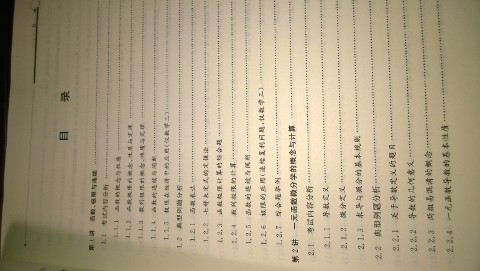 目 录
第1讲 函数、极限与连续
1.1 考试内容分析
1.1.1 函数的概念与性质
1.1.2 函数极限的概念、性质与定理
1.1.3 数列极限的概念、性质与定理
1.1.4 函数的连续与间断
1.1.5 极限在经济中的应用(仅数学三)
1.2 典型例题分析
1.2.1 函数表达
1.2.2 七种未定式的定值法
1.2.3 函数极限计算的综合题
1.2.4 数列极限的计算
1.2.5 函数的连续与间断
1.2.6 极限的应用(连续复利问题,仅数学三)
1.2.7 综合题举例
第2讲 一元函数微分学的概念与计算
2.1 考试内容分析
2.1.1 导数定义
2.1.2 微分定义
2.1.3 求导与微分的基本规则
2.2 典型例题分析
2.2.1 关于导数定义的题目
2.2.2 导数的几何意义
2.2.3 两组易混淆的概念
2.2.4 一元函数导数的基本性质